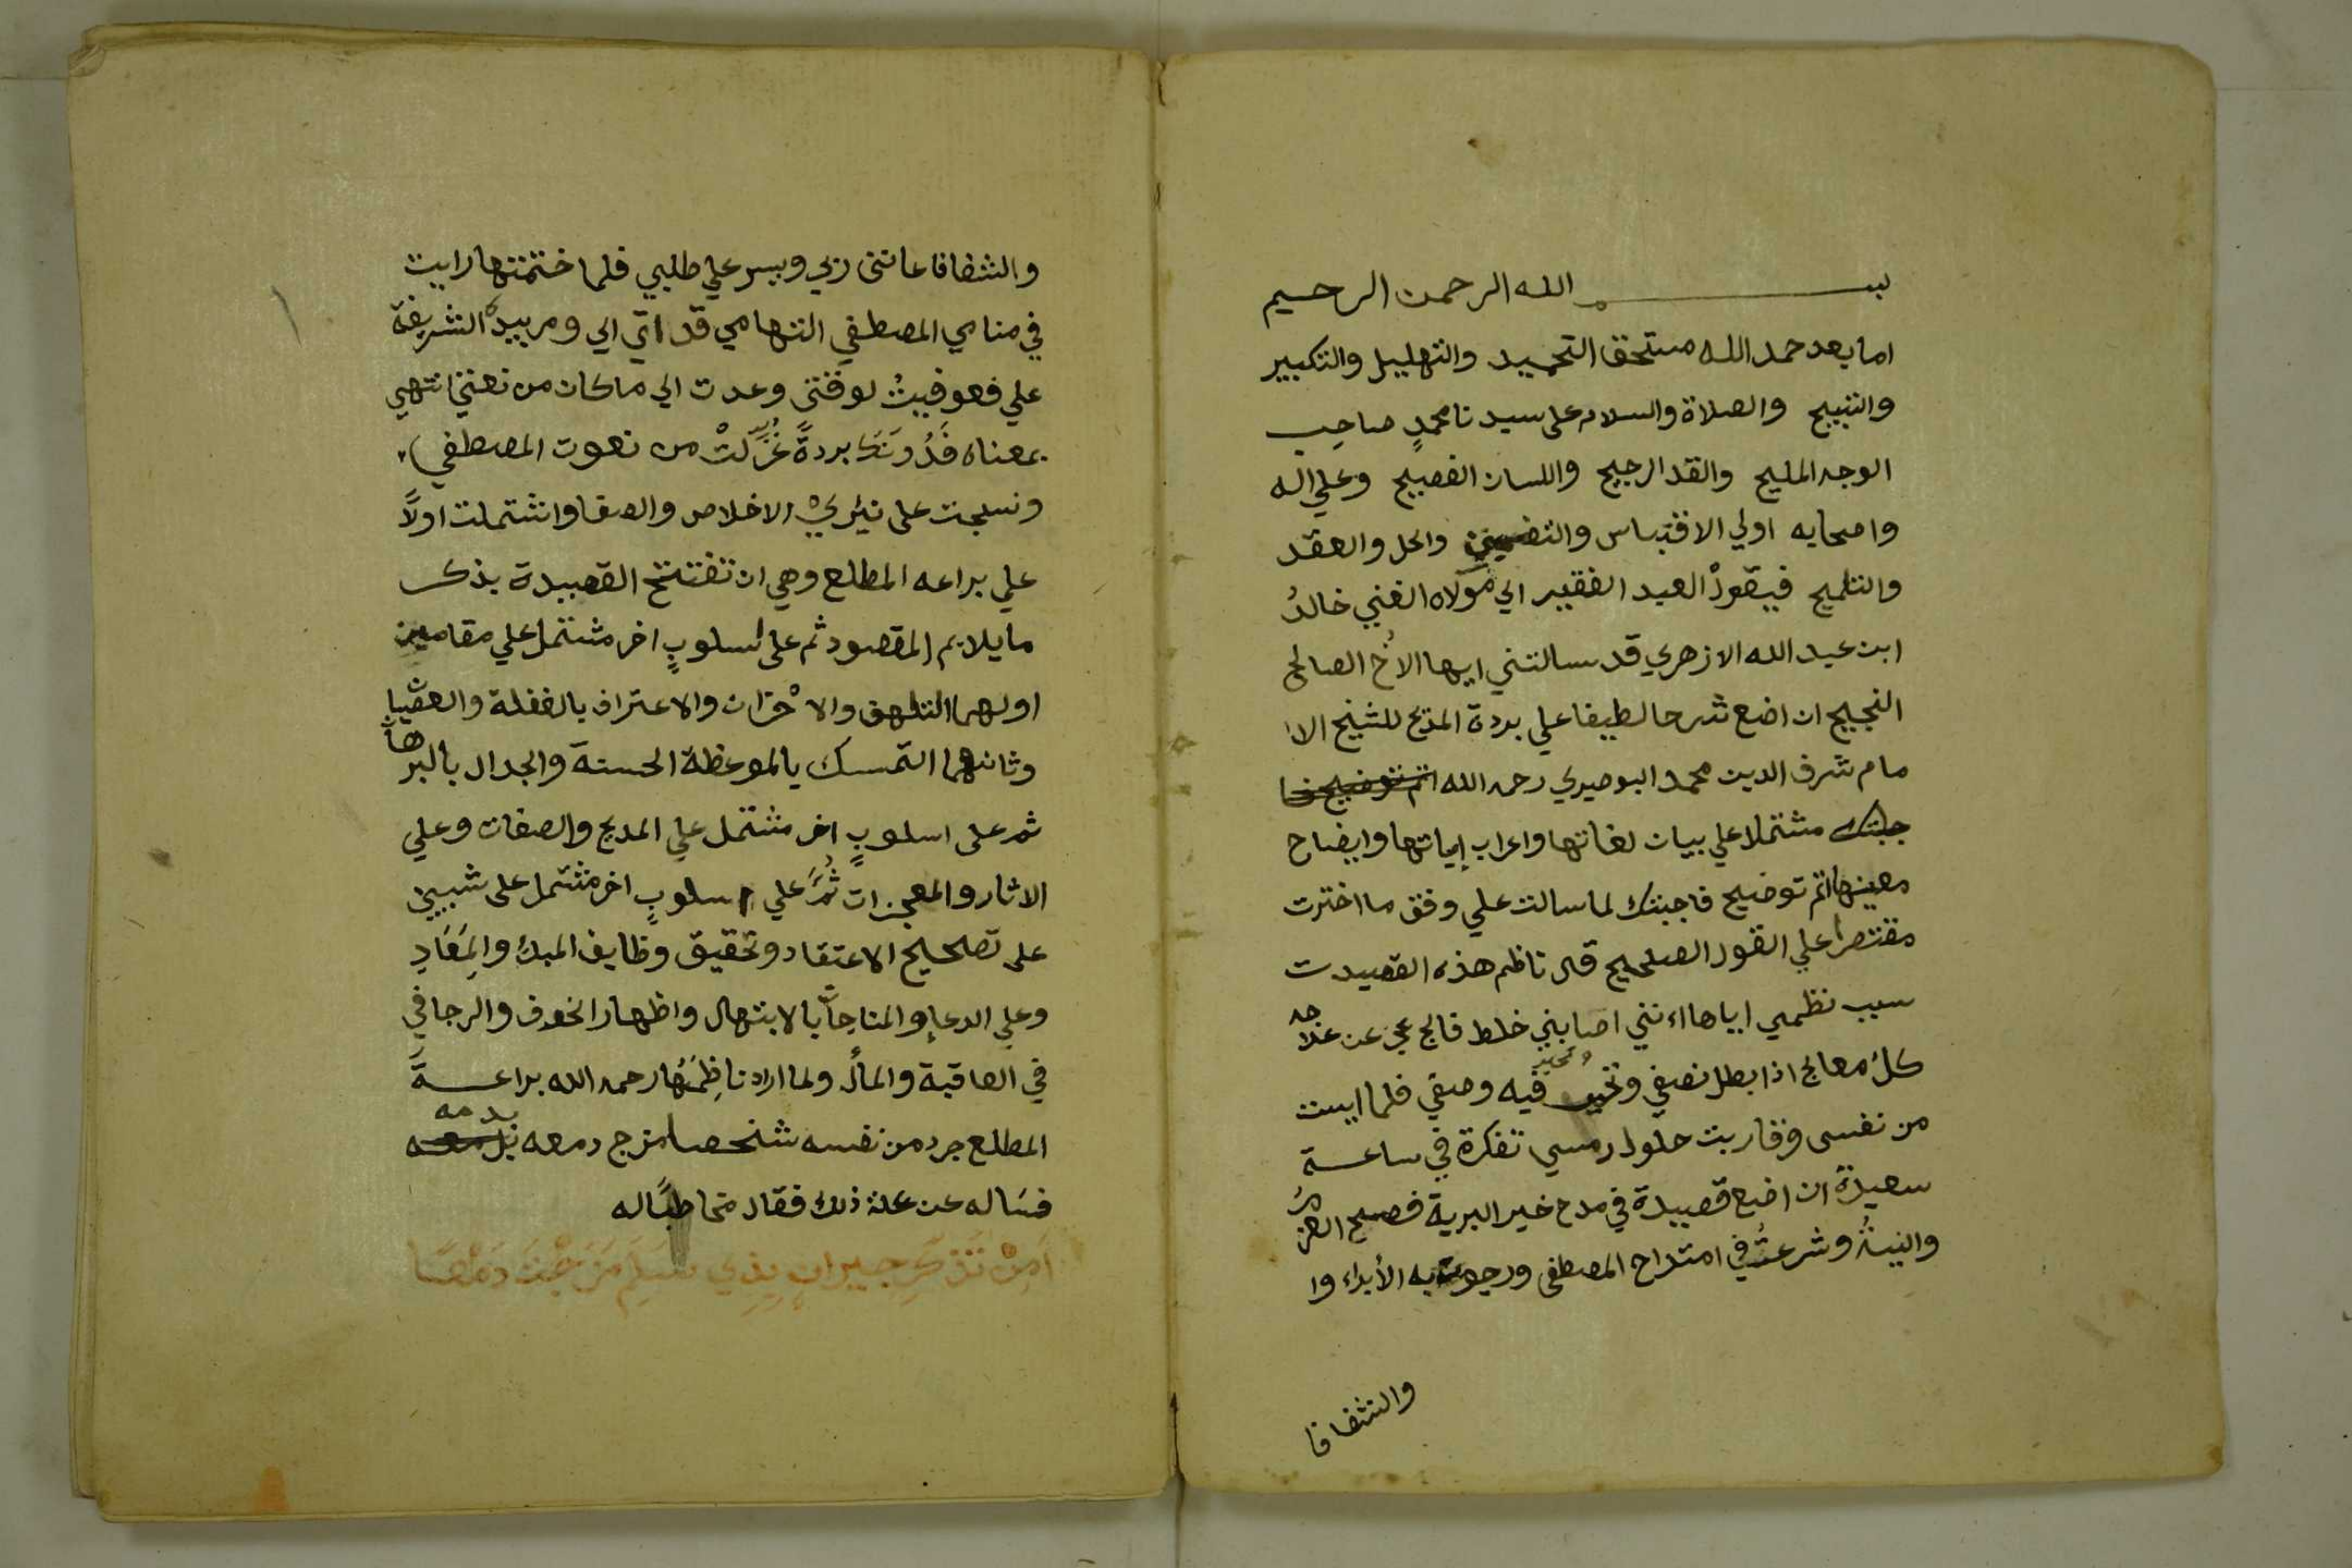 بسم الله الرحمن الرحيم
اما بعد حمد الله مستحق التحميد والتهليل والتكبير
والتسبيح والصلاة والسلام على سيدنا محمدٍ صاحب
الوجه المليح والقد الرجيح واللسان الفصيح وعلي اله
واصحابه اولي الاقتباس والتضمين والحل والعقد
والتلميح فيقولُ العبد الفقير الي مولاه الغني خالدُ
ابن عبد الله الازهري قد سالتني ايها الاخُ الصالح
النجيح ان اضع شرحا لطيفا علي بردة المديح للشيخ الا
مام شرف الدين محمد البوصيري رحمه الله اتم توضيح فا
جبتك مشتملا علي بيان لغاتها واعراب ابياتها وايضاح
معينها اتم توضيح فاجبتك لما سالت علي وفق ما اخترت
مقتصرا علي القول الصحيح قال ناظم هذه القصيدت
سبب نظمي اياها اءنني اصابني خلط فالج عجز عن علاجه
كلُ معالج اذا بطل نصفي وتحير فيه وصفي فلما ايست
من نفسي وقاربت حلول رمسي تفكرة في ساعة
سعيدة ان اضع قصيدة في مدح خير البرية فصح العزمُ
والنيةُ وشرعتُ في امتداح المصطفى ورجوت به الأبراء وا
والشفافا
والشفافا عانني ربي ويسر علي طلبي فلما ختمتها رايت
في منامي المصطفي التهامي قد اتي الي ومر بيده الشريفة
علي فعوفيتُ لوقتي وعدت الي ما كان من نعتي انتهي
بمعناه فَدُونَكَ بردةً غُزِلتْ من نعوت المصطفي
ونسجت على نيري الاخلاص والصفا واشتملت اولاً
علي براعه المطلع وهي ان تفتتح القصيدة بذكر
ما يلايم المقصود ثم على اسلوبٍ اخر مشتمل علي مقامين
اولهما التلهف والاحزان والاعتراف بالغفلة والعصيان
وثانهما التمسك بالموعظة الحسنة والجدال بالبرهان
ثم على اسلوبٍ اخر مشتمل علي المديح والصفات وعلي
الاثار والمعجزات ثُمَّ علي اسلوبٍ اخر مشتمل على شيين
على تصحيح الاعتقاد وتحقيق وظايف المبدأ والمَعَادِ
وعلي الدعا والمناجاة بالابتهال واظهار الخوف والرجا في
في العاقبة والمأل ولما اراد ناظِمُهَا رحمه الله براعة
المطلع جرد من نفسه شخصا مزج دمعه بدمه
فسَاله عن علة ذلك فقال مخاطبًا له
اَمِنْ تَذَكُّرِ جيرانٍ بِذِي سَلَمٍ مَزَجْتَ دَمْعًا